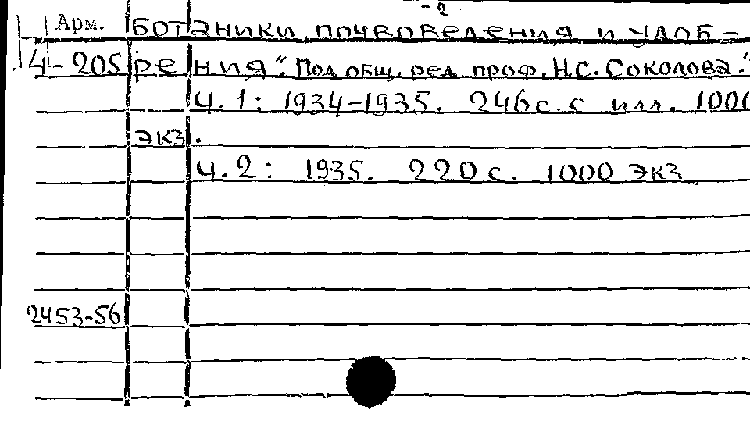 -2
Арм. ботаники, почвоведения и удоб-
4-205 рения". Под общ. ред. проф. Н.С. Соколова.
ч. 1: 1934-1935. 246 с. с илл. 1000
экз.
ч. 2: 1935. 220 с. 1000 экз
2453-56